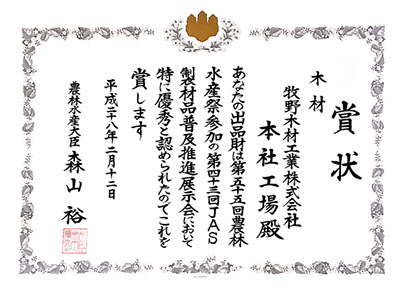 賞状
木材
牧野木材工業株式会社
本社工場殿
あなたの出品財は第五十五回農林
水産祭参加の第四十三回JAS
製材品普及推進展示会において
特に優秀と認められたのでこれを
賞します
平成二十八年二月十二日
農林水産大臣 森山 裕